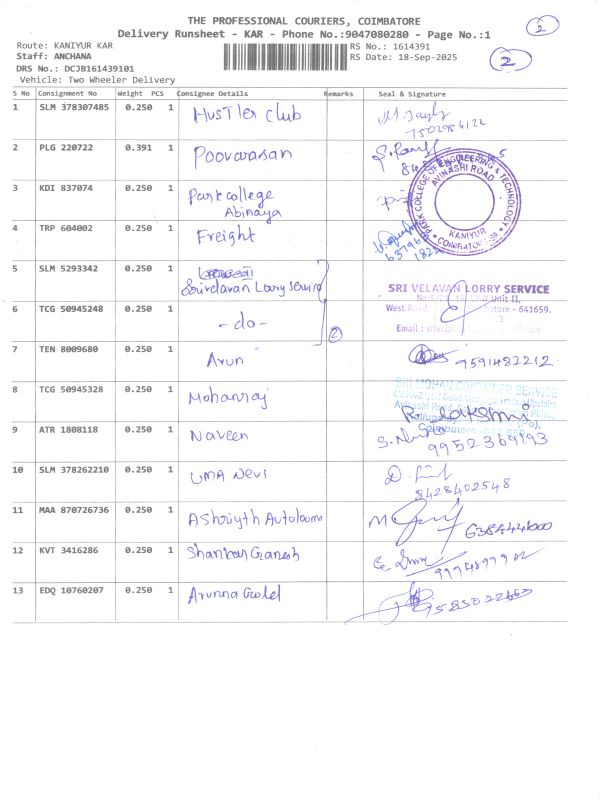 THE PROFESSIONAL COURIERS, COIMBATORE
Delivery Runsheet - KAR - Phone No.:9047080280 - Page No.:1
2
Route: KANIYUR KAR
RS No.: 1614391
Staff: ANCHANA
RS Date: 18-Sep-2025
2
DRS No.: DCJB161439101
Vehicle: Two Wheeler Delivery
S No Consignment No Weight PCS Consignee Details Remarks Seal & Signature
1 SLM 378307485 0.250 1 Hustler Club
7502954122
2 PLG 220722 0.391 1 Poovarasan
3 KDI 837074 0.250 1 Park college
Abinaya
PARK COLLEGE OF ENGINEERING & TECHNOLOGY
AVINASHI ROAD
KANIYUR
COIMBATORE
4 TRP 604002 0.250 1 Freight
5 SLM 5293342 0.250 1
Srivelavan Lorry Service
SRI VELAVAN LORRY SERVICE
Unit II,
West Road, - 641659.
Email :
6 TCG 50945248 0.250 1 -do-
2
7 TEN 8009680 0.250 1 Arun
9591482212
8 TCG 50945328 0.250 1 Mohanraj
SRI MOHAN CONTAINER SERVICE
9 ATR 1808118 0.250 1 Naveen
9952369193
10 SLM 378262210 0.250 1 UMA Devi
8428402548
11 MAA 870726736 0.250 1 AShriyth Autolooms
12 KVT 3416286 0.250 1 Shankar Ganesh
13 EDQ 10760207 0.250 1